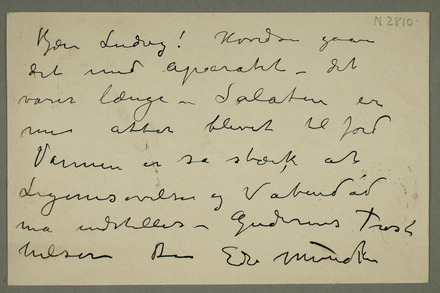 N 2810-
Kjære Ludvig! Hvordan gaar
det med Aparatet – det
varer længe – Salaten er
nu atter blevet til Jord
Varmen er så stærk at
Legemsøvelser og Vabendåd
må indstilles – Gudernes Trøst
hilsen Din Edv Munch